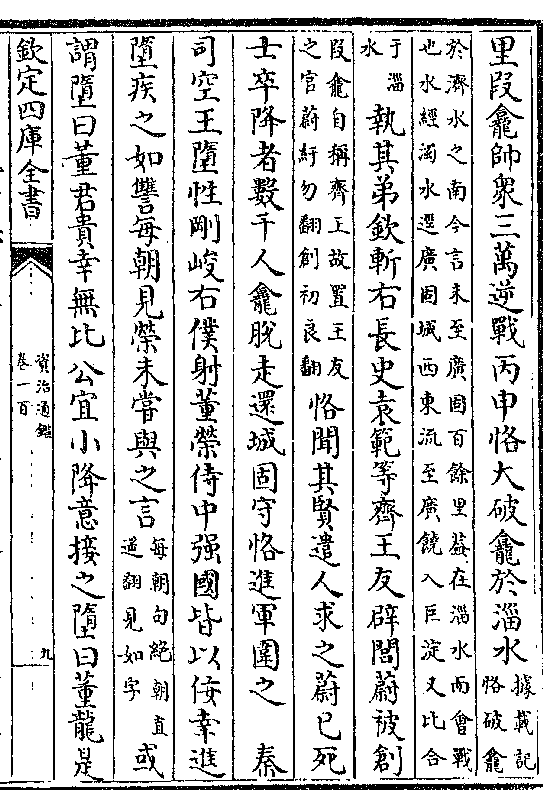 里段龕帥衆三萬逆戰丙申恪大破龕於淄水據載記恪破龕
於濟水之南今言未至廣固百餘里葢在淄水而會戰
也水經濁水逕廣固城西東流至廣饒入巨淀又北合
于淄水執其弟欽斬右長史袁範等齊王友辟閭蔚被創
段龕自稱齊王故置王友之官蔚紆勿翻創初良翻恪聞其賢遣人求之蔚已死
士卒降者數千人龕脫走還城固守恪進軍圍之 秦
司空王墮性剛峻右僕射董榮侍中强國皆以佞幸進
墮疾之如讐每朝見榮未嘗與之言每朝句絶朝直遥翻見如字或
謂墮曰董君貴幸無比公宜小降意接之墮曰董龍是
欽定四庫全書
資治通鑑
卷一百
九